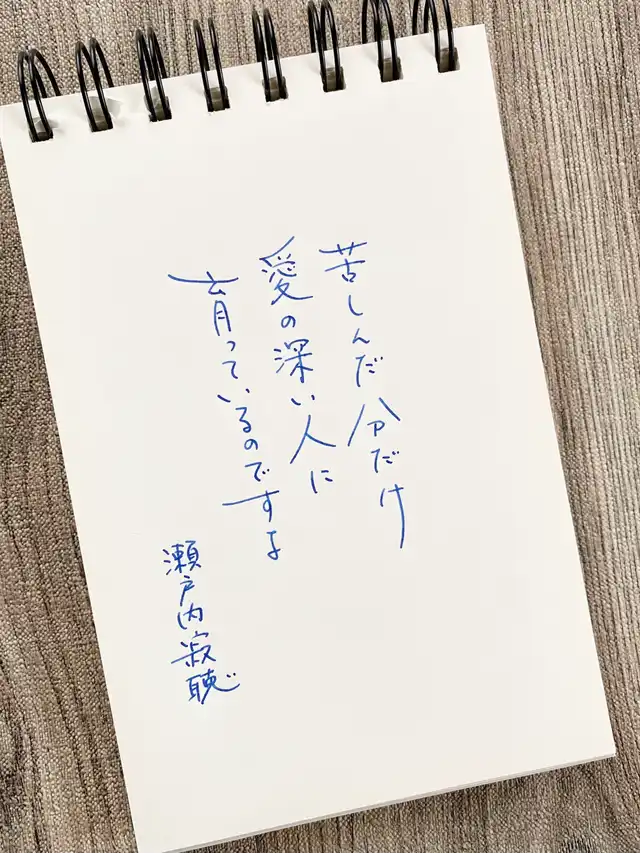 苦しんだ分だけ
愛の深い人に
育っているのですよ
瀬戸内寂聴